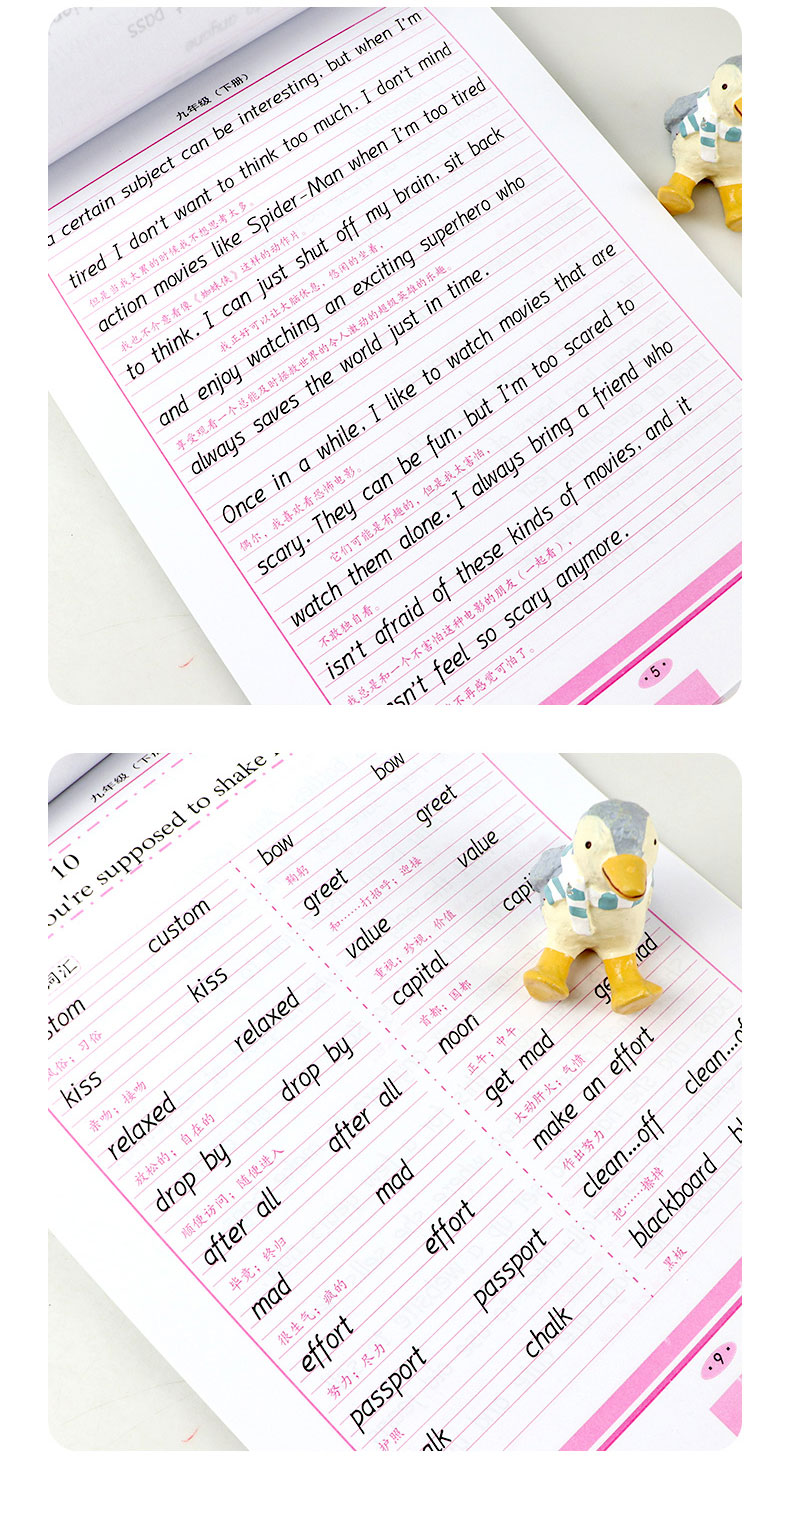 九年级（下册）
a certain subject can be interesting, but when I'm
tired I don't want to think too much. I don't mind
但是当我太累的时候我不想思考太多。
action movies like Spider-Man when I'm too tired
我也不介意看像《蜘蛛侠》这样的动作片。
to think. I can just shut off my brain, sit back
我正好可以让大脑休息，悠闲的坐着，
and enjoy watching an exciting superhero who
享受观看一个总能及时拯救世界的令人激动的超级英雄的乐趣。
always saves the world just in time.
Once in a while, I like to watch movies that are
偶尔，我喜欢看恐怖电影。
scary. They can be fun, but I'm too scared to
它们可能是有趣的，但是我太害怕，
watch them alone. I always bring a friend who
不敢独自看。
isn't afraid of these kinds of movies, and it
我总是和一个不害怕这种电影的朋友（一起看），
feel so scary anymore.
不再感觉可怕了。
· 5 ·
九年级（下册
10
You're supposed to shake
词汇
custom
风俗；习俗
kiss kiss
亲吻；接吻
relaxed relaxed
放松的；自在的
drop by drop by
顺便访问；随便进入
after all after all
毕竟；终归
mad mad
很生气；疯的
effort effort
努力；尽力
passport passport
护照
chalk
bow bow
鞠躬
greet greet
和……打招呼；迎接
value value
重视；珍视，价值
capital
首都；国都
noon
正午；中午
get mad
大动肝火；气愤
make an effort
作出努力
clean...off clean...of
把……擦掉
blackboard
黑板
· 9 ·